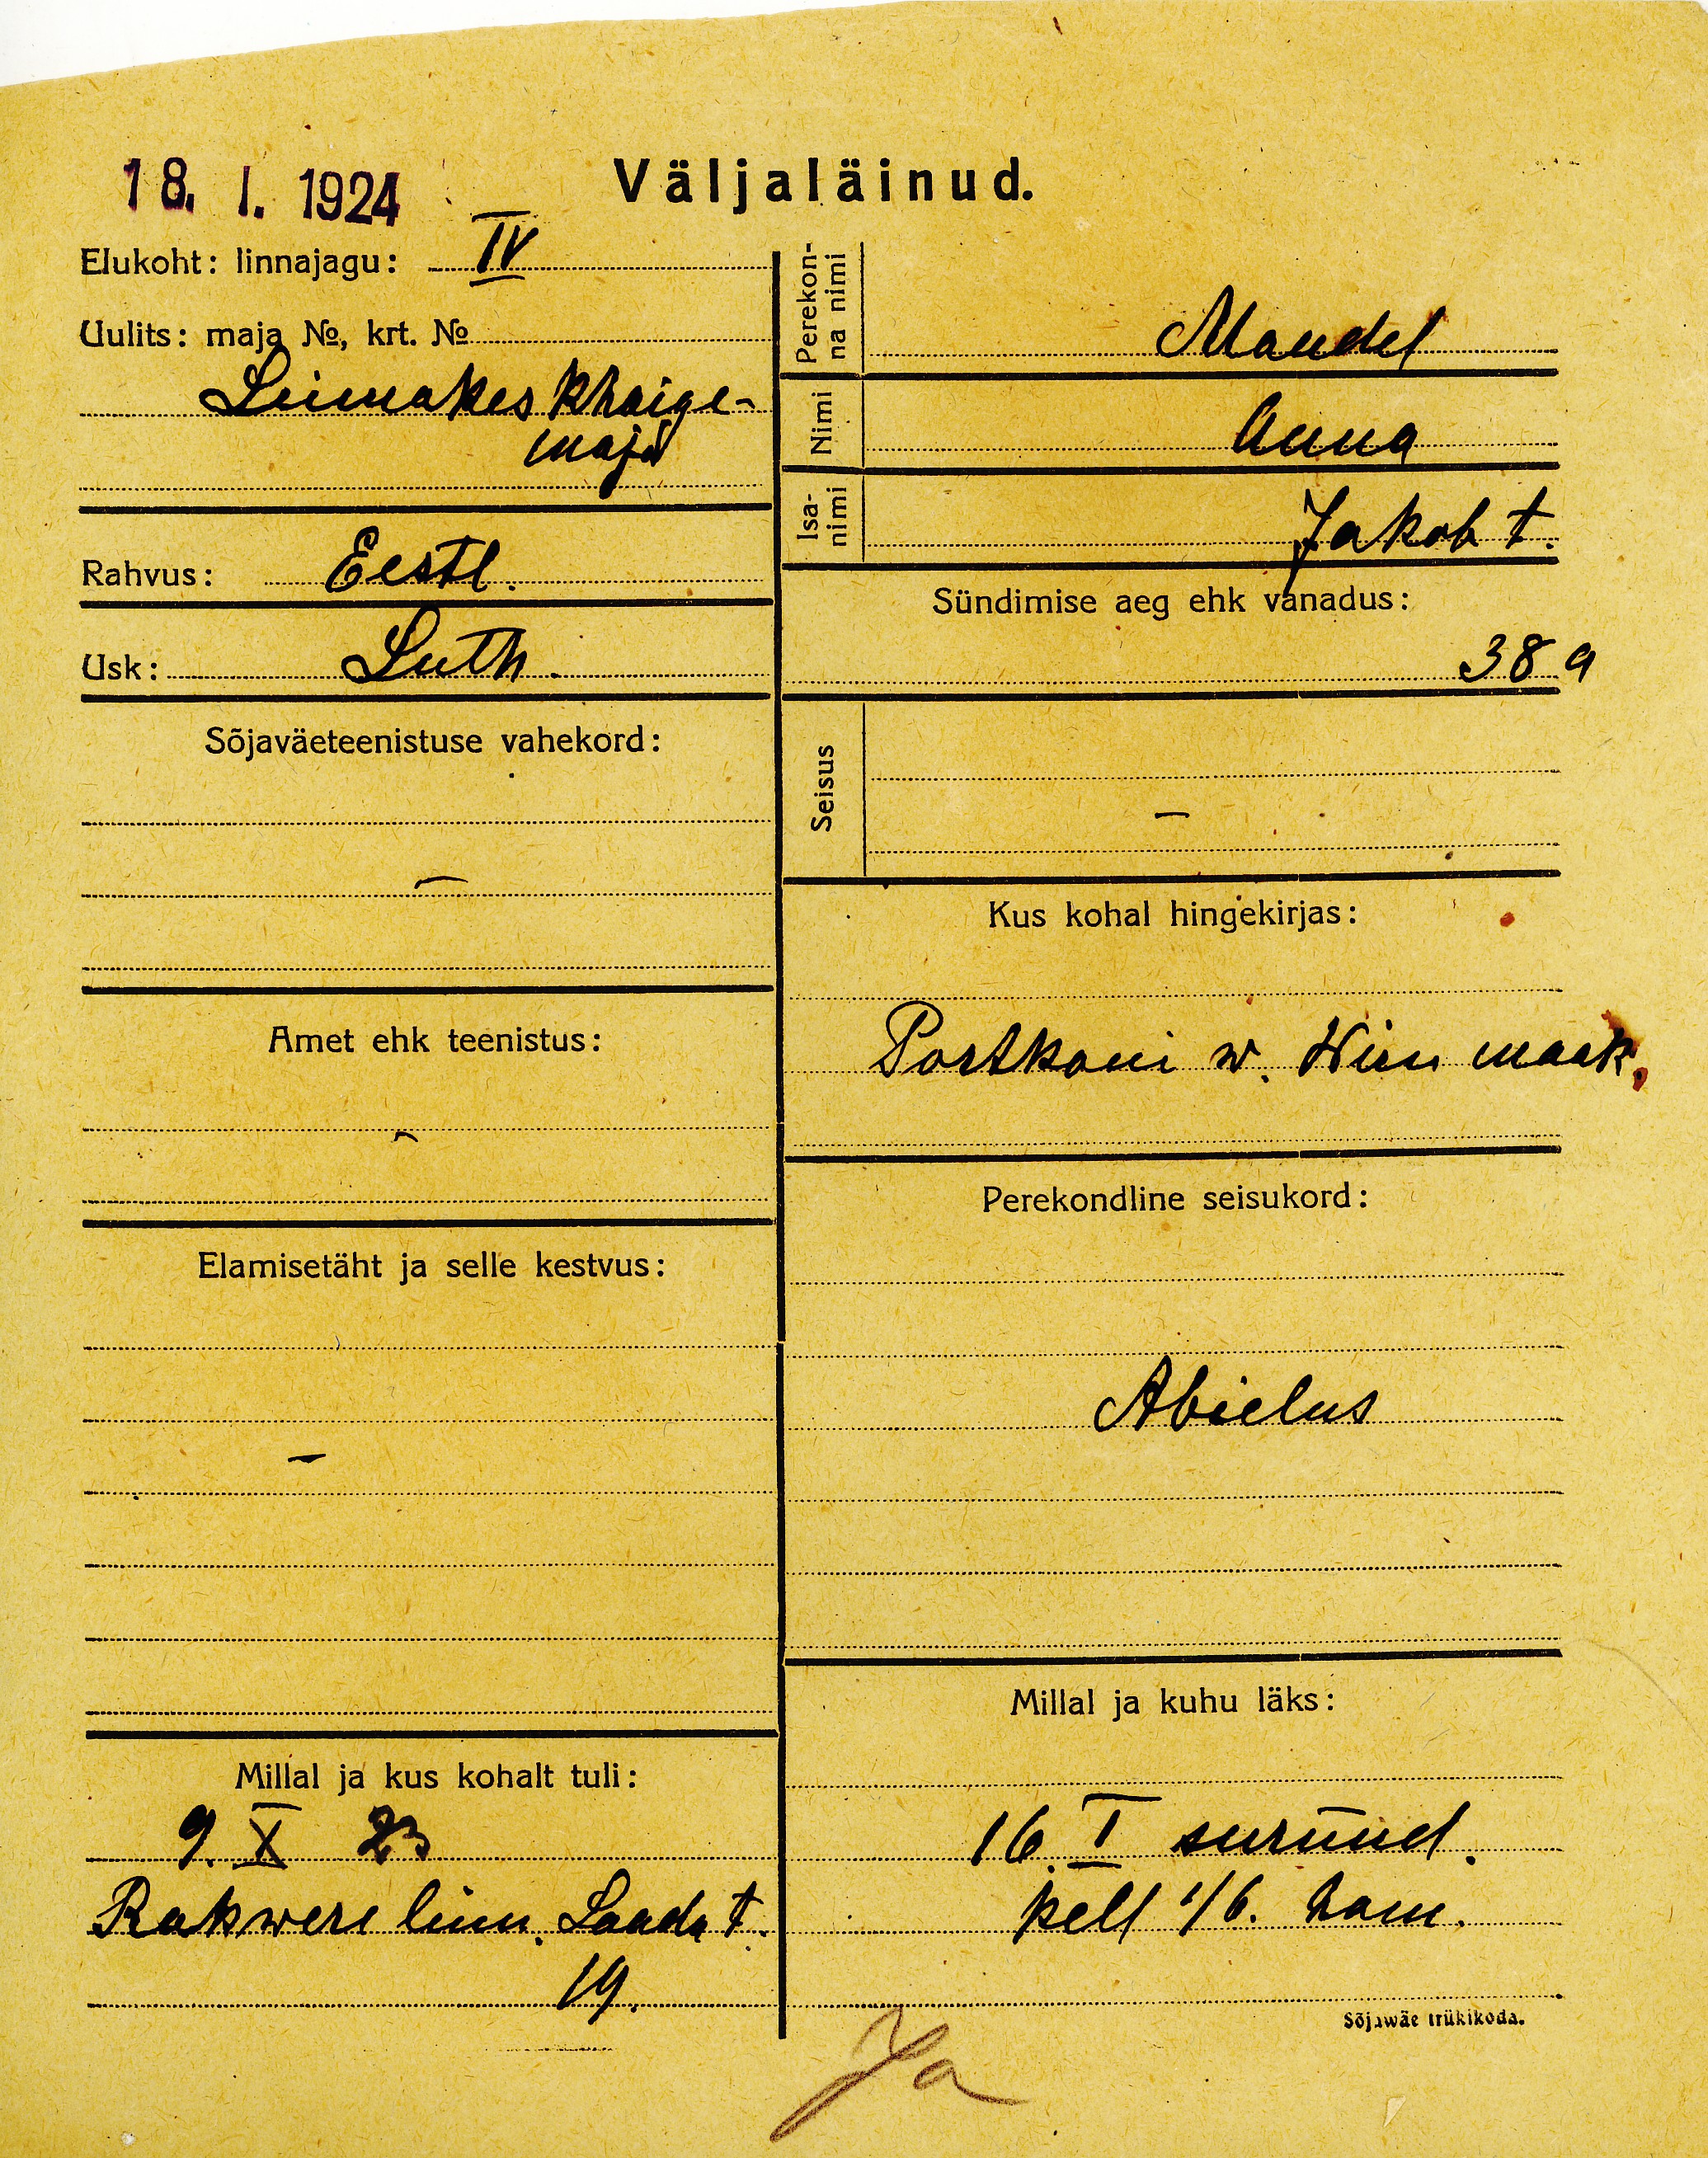 18. I. 1924
Väljaläinud.
Elukoht: linnajagu: IV
Uulits: maja №, krt. №
khaige-
maja
Rahvus: Eestl.
Usk: Luth.
Sõjaväeteenistuse vahekord:
—
Amet ehk teenistus:
—
Elamisetäht ja selle kestvus:
—
Millal ja kus kohalt tuli:
9. X 23
Rakwere linn. Laada t.
19.
Perekon-
na nimi
Mandel
Nimi
Anna
Isa-
nimi
Jakob t.
Sündimise aeg ehk vanadus:
38 a
Seisus
—
Kus kohal hingekirjas:
Portkuni w. Wiru maak.
Perekondline seisukord:
Abielus
Millal ja kuhu läks:
16. I surnud.
kell 1/6. hom.
Sõjawäe trükikoda.
Ja